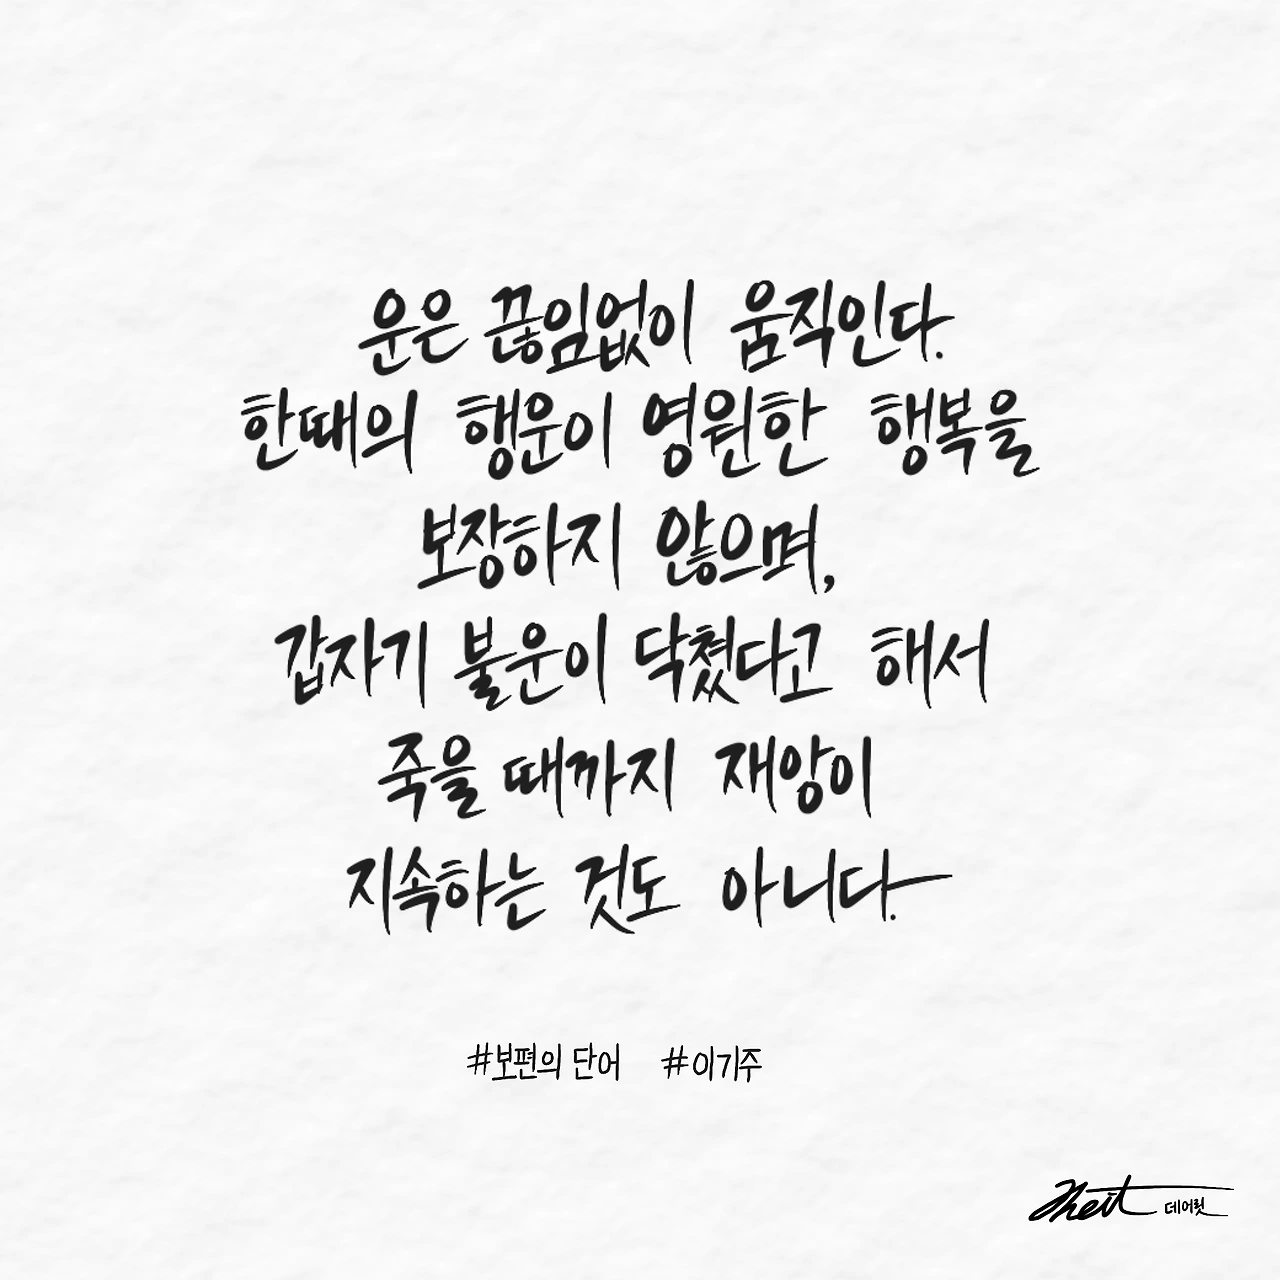 운은 끊임없이 움직인다.
한때의 행운이 영원한 행복을
보장하지 않으며,
갑자기 불운이 닥쳤다고 해서
죽을 때까지 재앙이
지속하는 것도 아니다.
#보편의 단어 #이기주
데어릿